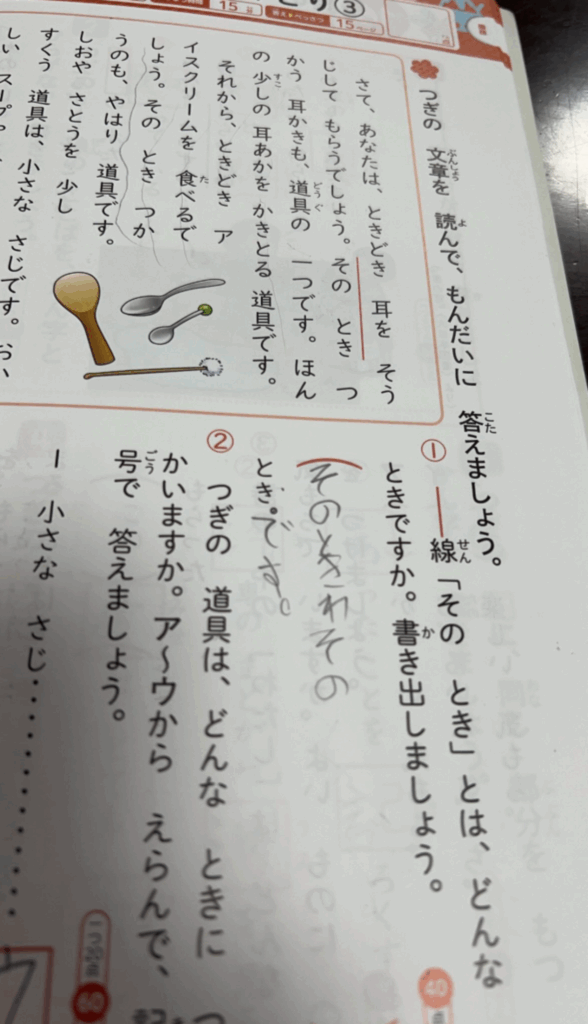 ③
15
15
つぎの 文章を 読んで、もんだいに 答えましょう。
さて、あなたは、ときどき 耳を そう
じして もらうでしょう。その とき つ
かう 耳かきも、道具の 一つです。ほん
の 少しの 耳あかを かきとる 道具です。
それから、ときどき ア
イスクリームを 食べるで
しょう。その とき つか
うのも、やはり 道具です。
しおや さとうを 少し
すくう 道具は、小さな さじです。おい
しい スープ
① ―線「その とき」とは、どんな
ときですか。書き出しましょう。
そのときれその
とき。です。
② つぎの 道具は、どんな ときに つ
かいますか。ア〜ウから えらんで、記
号で 答えましょう。
1 小さな さじ‥‥‥‥‥‥ウ
40
一つ20点
60